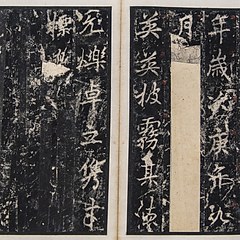 年歲次庚午九
月
英英披霧其德
允爍卓立儁才
標